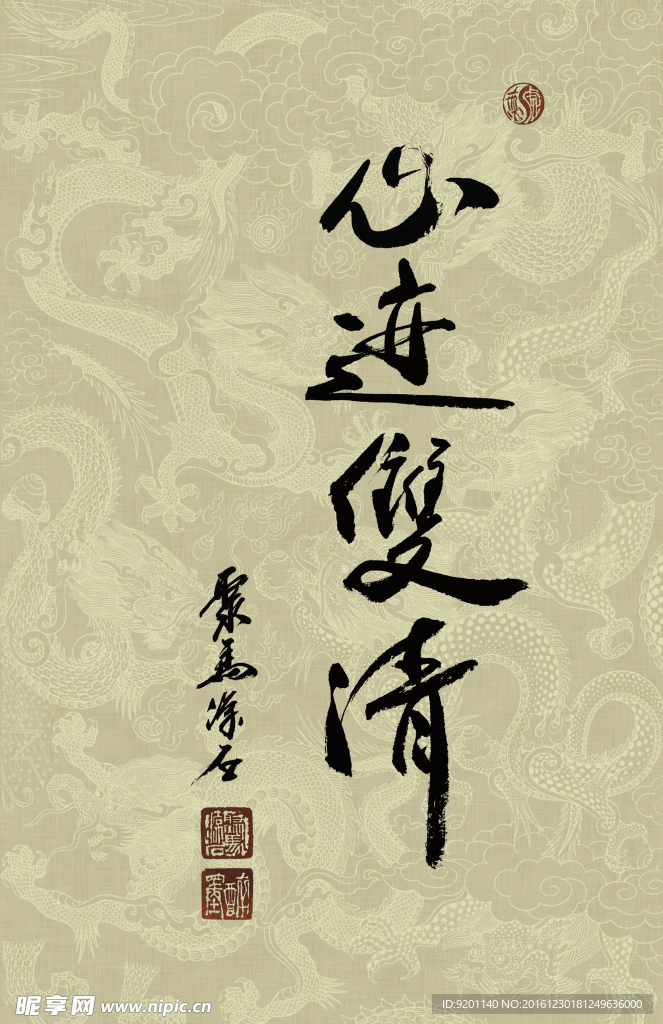 心迹雙清
聚馬涤石
昵享网 www.nipic.cn
ID:9201140 NO:20161230181249636000